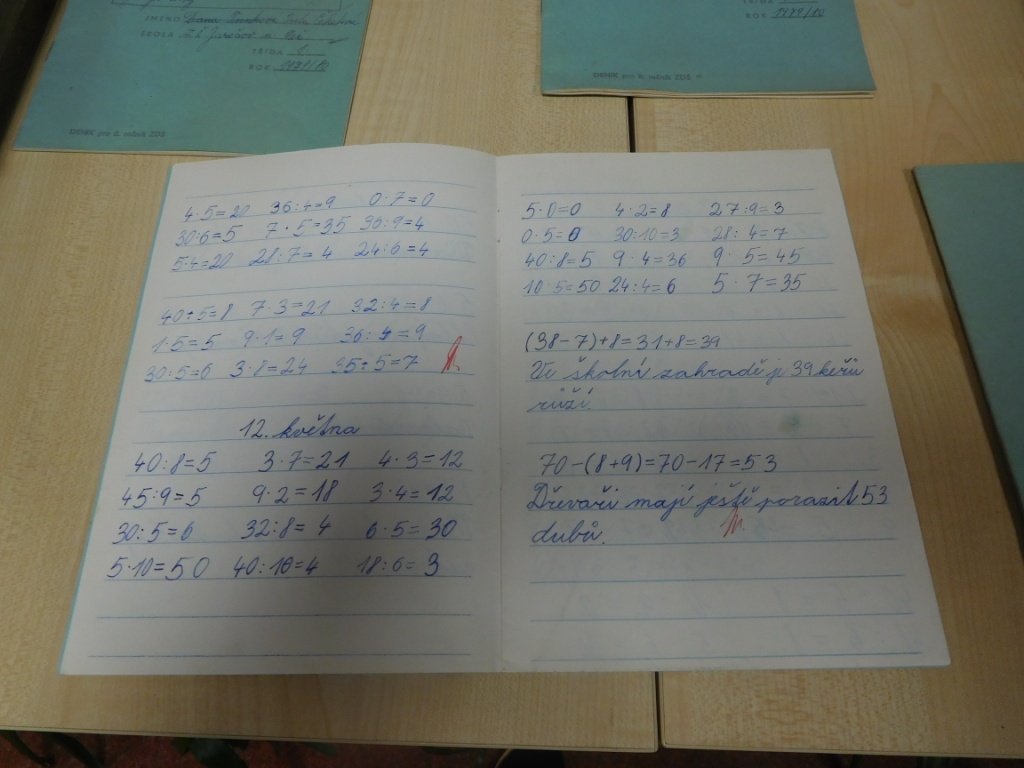 JMÉNO
ŠKOLA
TŘÍDA
ROK 1979/80
DENÍK pro 2. ročník ZDŠ
TŘÍDA
ROK 1979/80
DENÍK pro 2. ročník ZDŠ
4·5=20 36:4=9 0·7=0
30:6=5 7·5=35 36:9=4
5·4=20 28:7=4 24:6=4
40:5=8 7·3=21 32:4=8
1·5=5 9·1=9 36:4=9
30:5=6 3·8=24 35:5=7
12. května
40:8=5 3·7=21 4·3=12
45:9=5 9·2=18 3·4=12
30:5=6 32:8=4 6·5=30
5·10=50 40:10=4 18:6=3
5·0=0 4·2=8 27:9=3
0·5=0 30:10=3 28:4=7
40:8=5 9·4=36 9·5=45
10·5=50 24:4=6 5·7=35
(38-7)+8=31+8=39
Ve školní zahradě je 39 keřů
růží.
70-(8+9)=70-17=53
Dřevaři mají ještě porazit 53
dubů.